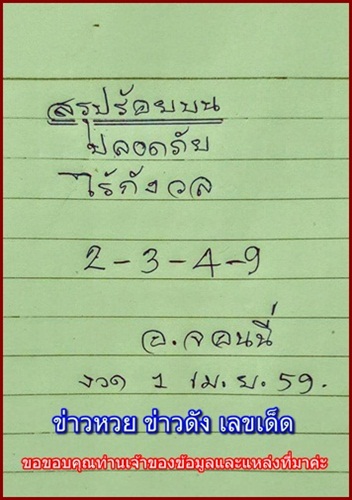 สรุปร้อยบน
ปลอดภัย
ไร้กังวล
2-3-4-9
อ.จอนนี่
งวด 1 เม.ย.59.
ข่าวหวย ข่าวดัง เลขเด็ด
ขอขอบคุณท่านเจ้าของข้อมูลและแหล่งที่มาค่ะ